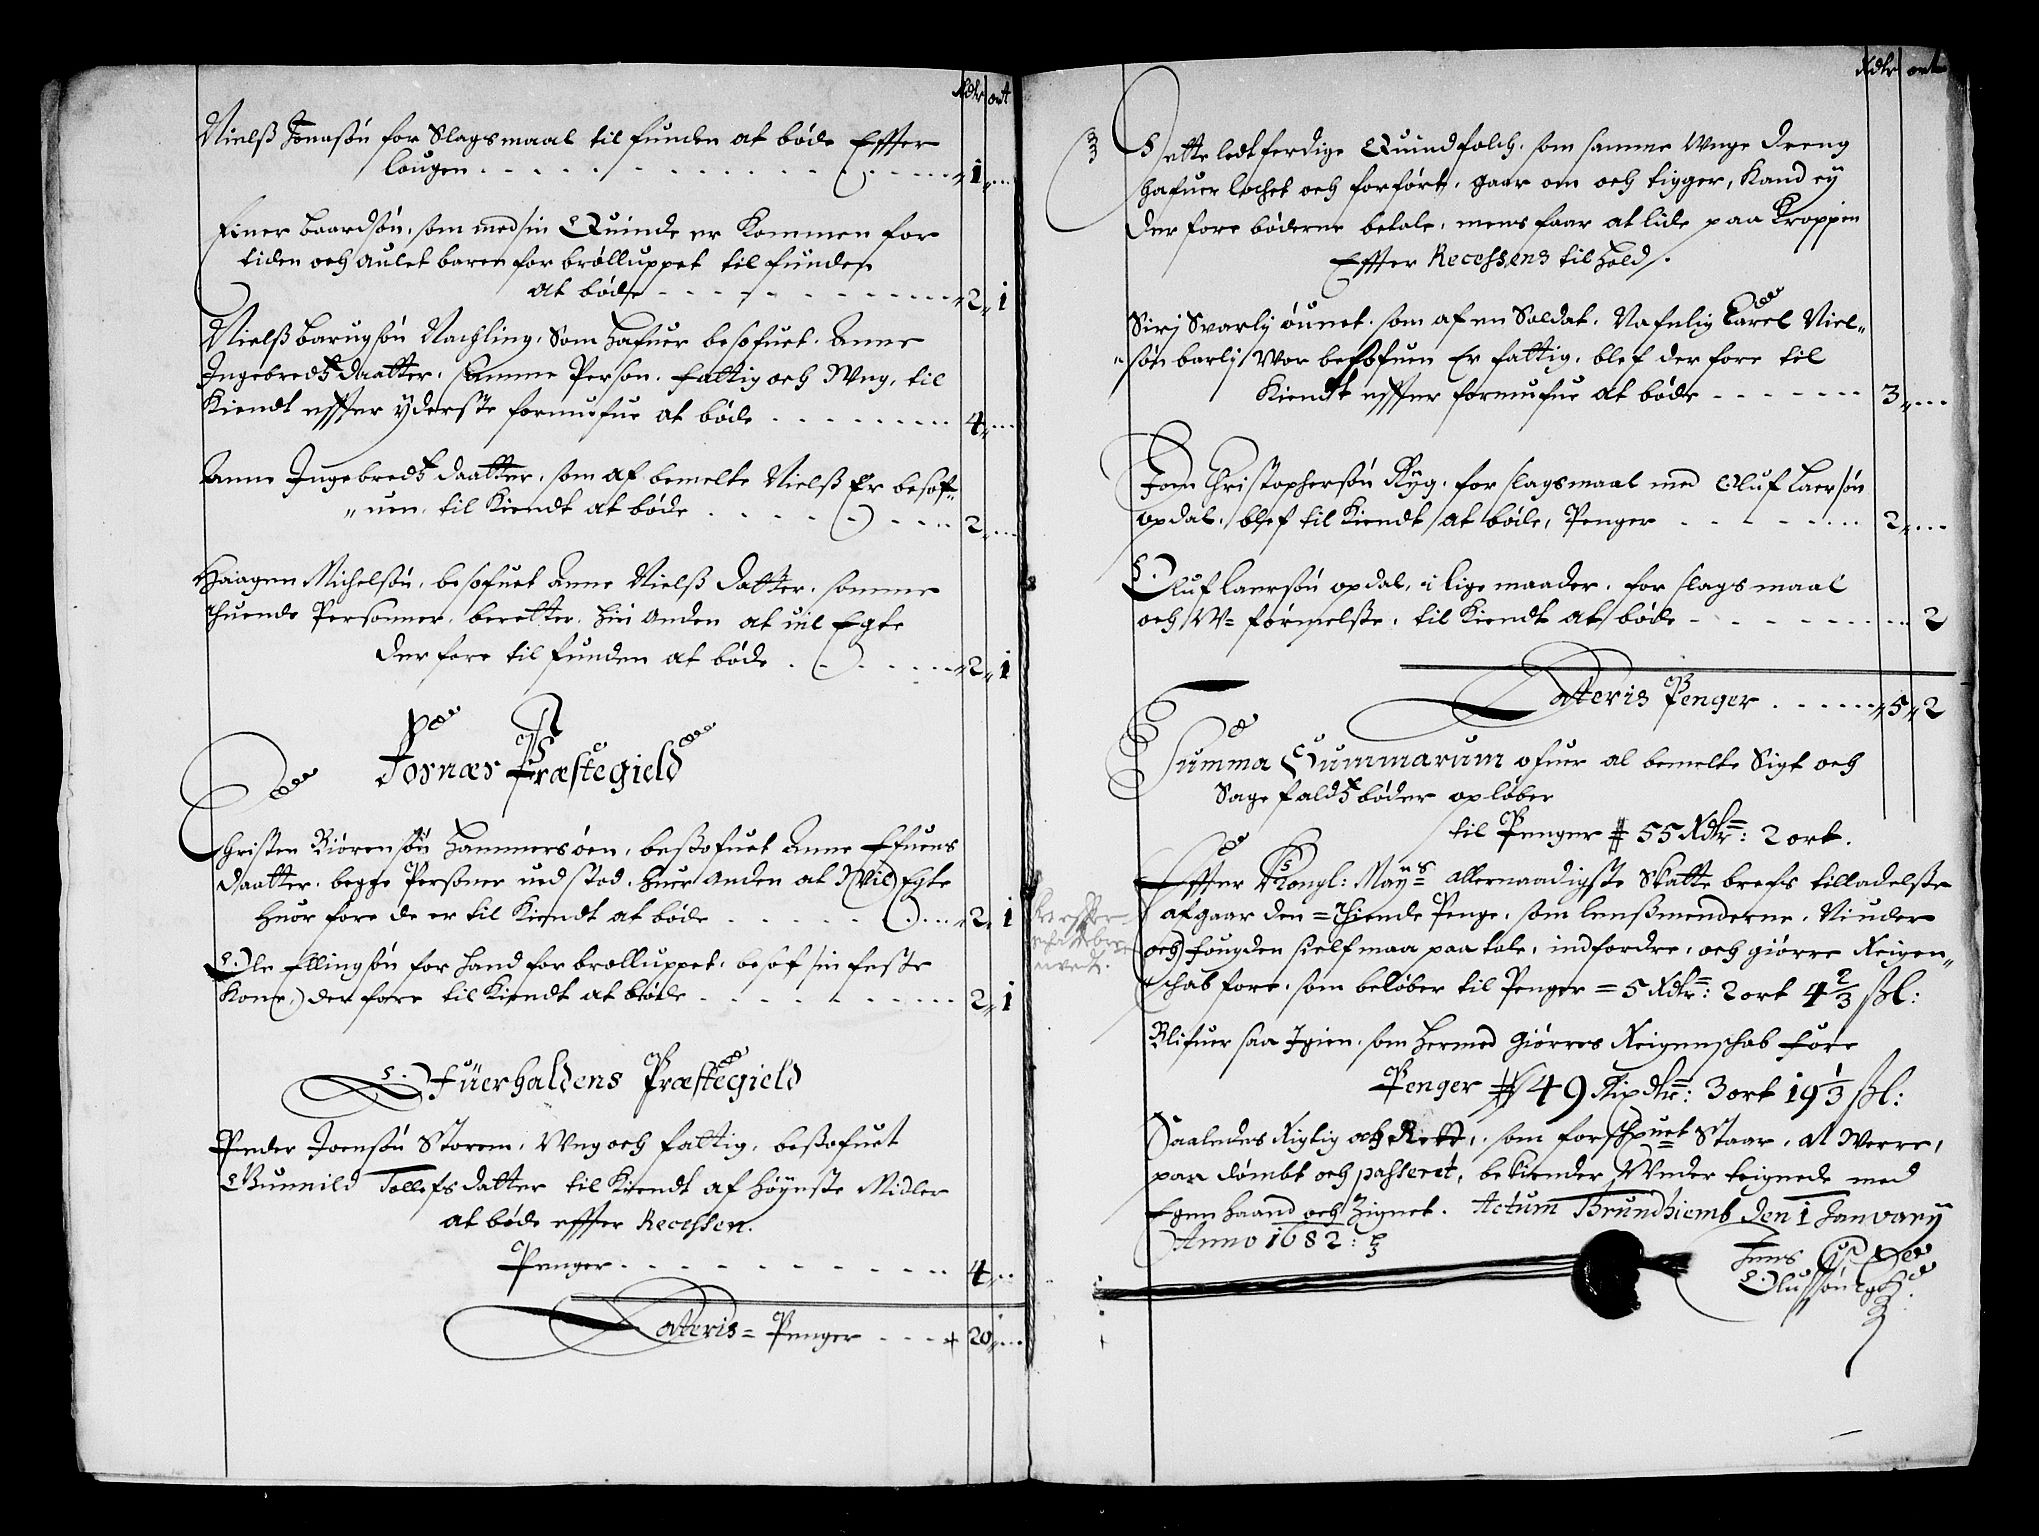 Rdlr ort
Nielß Jonasøn for Slagsmaal til funden at bøde Effter
lougen . . . . . . . . . . „ 1 „ ...
Einer baardsøn, som med sin Quinde er Kommen for
tiden och aulet baren for brølluppet til funden
at bøde - - - - - - „ 2 „ 1
Nielß barugsøn Nachling, Som hafuer besofuet Anne
Ingebredtz daatter, samme Person fattig och Wng, til
Kiendt effter yderste formufue at bøde . . . . . . 4 „ ...
Anne Ingebredtz daatter, som af bemelte Nielß Er besof„
„uen, til Kiendt at bøde . . . . . . . 2 „ ...
Haagen Michelsøn, besofuet Anne Nielß datter, samme
thuende Personner, beretter hin anden at uil Egte
der fore til funden at bøde . . . . . „ 2 „ 1
Fosnæs Præstegield
Christen Biørensøn Hammersøen, beßofuet Anne Efuens
daatter, begge Personer uedstod, huer anden at Wil Egte
huor fore de er til Kiendt at bøde . . . . . „ 2 „ 1
Ole Ellingsøn for hand for brølluppet, besof sin feste
Kone, der fore til Kiendt at bøde . . . . . 2 „ 1
Ofuerhaldens Præstegield
Peder Joensøn Storem, Wng och fattig, beßofuet
Gunnild Tollefsdatter til Kiendt af høyeste Midler
at bøde effter Recessen.
Penger . . . . . . . . . 4 „ ..
Lateris = Penger . . . . 20 „ ...
Rdlr ort
Dette ledtferdige Quindfolch, som samme Wnge dreng
hafuer lochet och forført, gaar om och tigger, Kand ey
der fore bøderne betale, mens faar at lide paa Kroppen
Effter Recessens til hold.
Sirj Svarlj øunet, som af en Soldat, Nafnlig Carel Niel„
„søn barlj Wor besofuen Er fattig, blef der fore til
Kiendt effter formufue at bøde . . . . . . . 3 „ ...
Joen Christophersøn Ryg, for slagsmaal med Oluf Laersøn
opdal, blef til Kiendt at bøde, Penger . . . . . 2 „ ...
Oluf Laersøn opdal, i lige maader, for slagsmaal
och W= førmelße, til Kiendt at bøde - . . . . . . 2
Lateris Penger . . . . . . „ 5 „ 2
Summa Summarum ofuer al bemelte Sigt och
Sage faldtz bøder opløber
til Penger # 55 Rdlr: 2 ort.
Effter Kongl: May:s allernaadigste Skatte brefs tilladelße
afgaar den = thiende Penge, som lensßmenderne, Niuder
och fougden sielf maa paatale, indfordre, och giørre Reigen„
„schab fore, som beløber til Penger = 5 Rdlr: 2 ort 4 2/3 ßl:
Blifuer saa Igien, som hermed Giørres Reigenschab före
Penger # 49 Rixdlr: 3 ort 19 1/3 ßl:
Saaledes Rigtig och Rett, som forschreuet Staar, at Werre,
paa dømbt och passeret, bekiender Wnder teignede med
Egen haand och Zignet. Actum Brundhiemb den 1 Januarij
Anno 1682:
Jens
Olufsøn